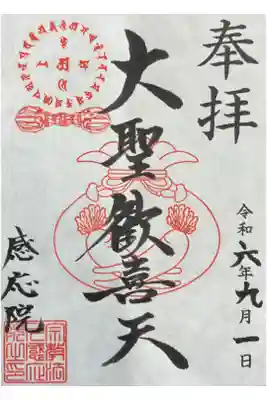 奉拝
令和六年九月一日
大聖歓喜天
感応院